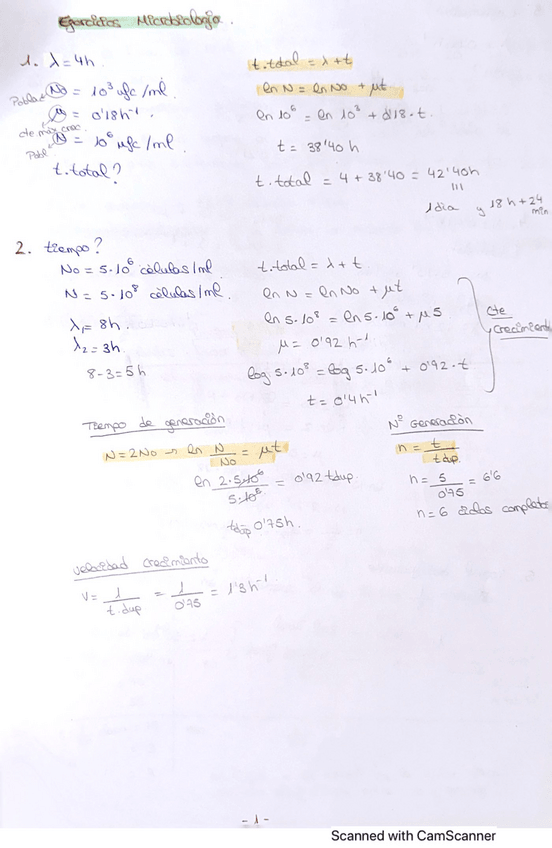 Ejercicios Microbiología.
1. λ = 4h
Poblac No = 10³ ufc/ml
μ = 0'18h⁻¹.
cte máx crec.
Pobl N = 10⁶ ufc/ml
t.total?
t.total = λ + t
ln N = ln No + μt
ln 10⁶ = ln 10³ + 0'18·t.
t = 38'40 h
t.total = 4 + 38'40 = 42'40h
1 día y 18 h + 24 min
2. tiempo?
No = 5·10⁶ células/ml
N = 5·10⁸ células/ml.
λ₁ = 8h
λ₂ = 3h
8-3 = 5h
t.total = λ + t
ln N = ln No + μt
ln 5·10⁸ = ln 5·10⁶ + μ5
μ = 0'92 h⁻¹
log 5·10⁸ = log 5·10⁶ + 0'92·t
t = 0'4h⁻¹
Cte
Crecimiento
Tiempo de generación
N = 2No → ln N/No = μt
ln 2·5·10⁶/5·10⁶ = 0'92 tdup
tdup 0'75h.
Nº Generación
n = t/tdup
n = 5/0'75 = 6'6
n = 6 ciclos completo
velocidad crecimiento
v = 1/t.dup = 1/0'75 = 1'3 h⁻¹
- 1 -
Scanned with CamScanner